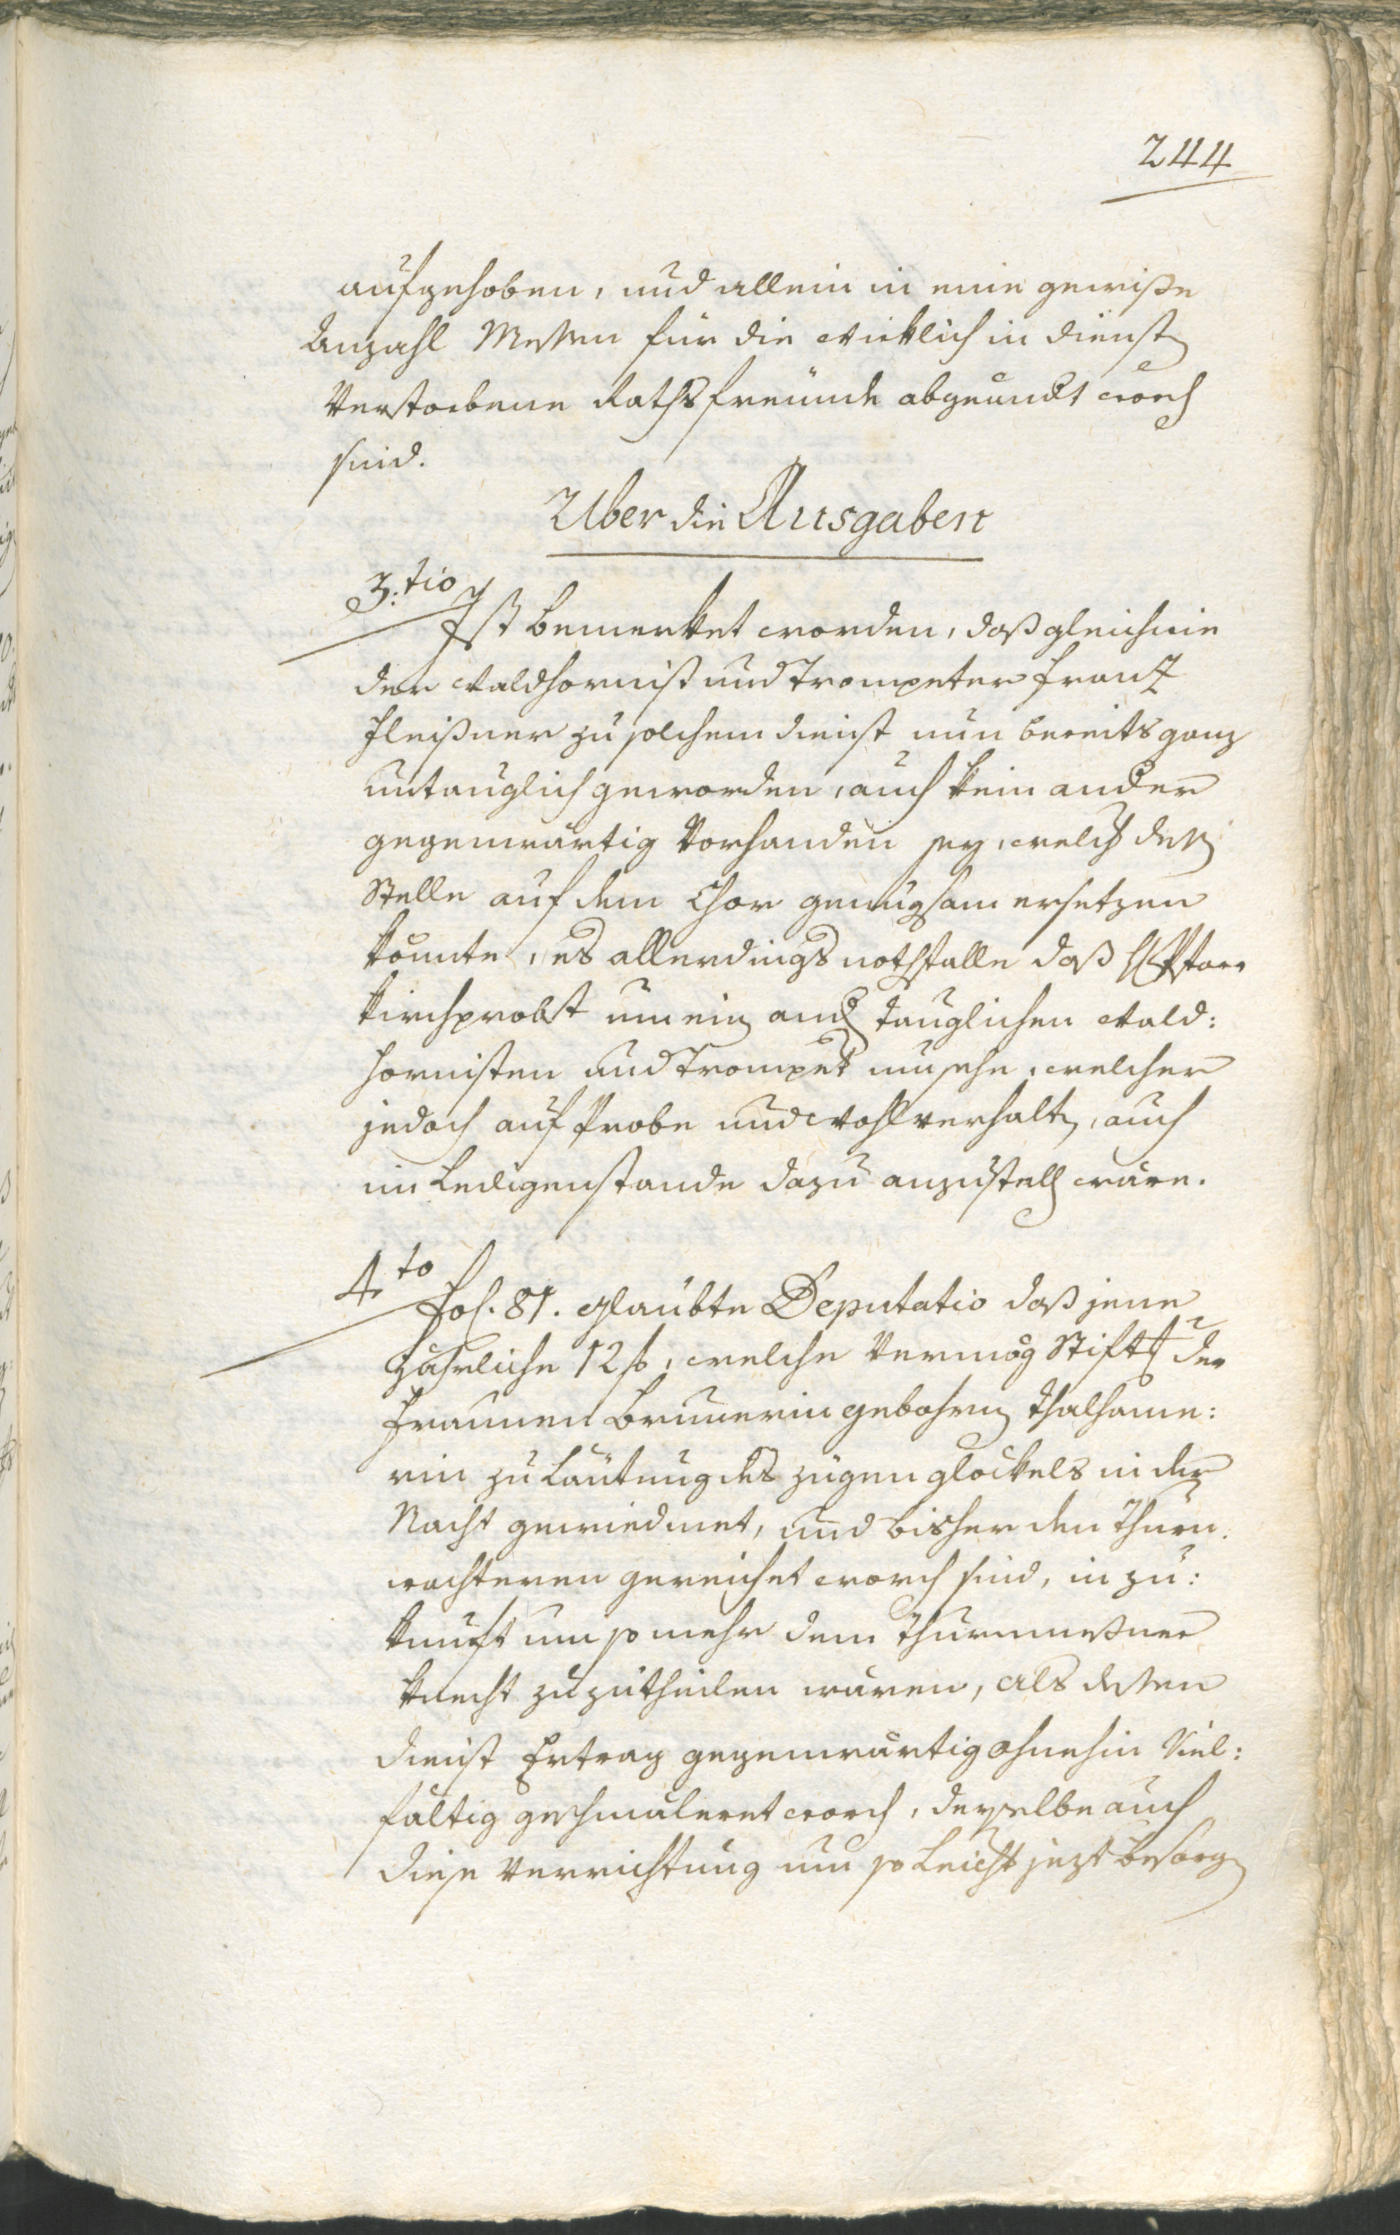 244
aufgehoben, und allein in eine gewiße
Anzahl Messen für die wirklich in dienst
Verstorbene Rathsfreünde abgeändt word
sind.
Uber die Ausgaben
3:tio
Ist bemerket worden, daß gleichwie
der Waldhornist und Trompeter Frantz
Fleißner zu solchem dienst nun bereits ganz
untauglich geworden, auch kein ander
gegenwärtig Vorhanden sey, welch deßen
Stelle auf dem Chor genugsam ersetzen
könnte, es allerdings nothfalle daß H Pfarr
kirchprobst um ein and tauglichen Wald:
hornisten und Trompet umsehe, welcher
jedoch auf Probe und Wohlverhalt, auch
im Ledigenstande dazu anzustell wäre.
4to
Fol. 81. glaubte Deputatio daß jene
Jährliche 12 f, welche Vermög Stift der
Fraunen Brunerin gebohrn Thalhame:
rin zu Läutung des Zügenglöckels in der
Nacht gewiedmet, und bisher den Thurn
wachteren gereichet word sind, in zu:
kunft um so mehr dem Thurnmeßner
knecht zuzutheilen wären, als dessen
dienst Ertrag gegenwärtig ohnehin Viel:
fältig geschmäleret word, derselbe auch
diese Verrichtung um so leicht jezt besorg